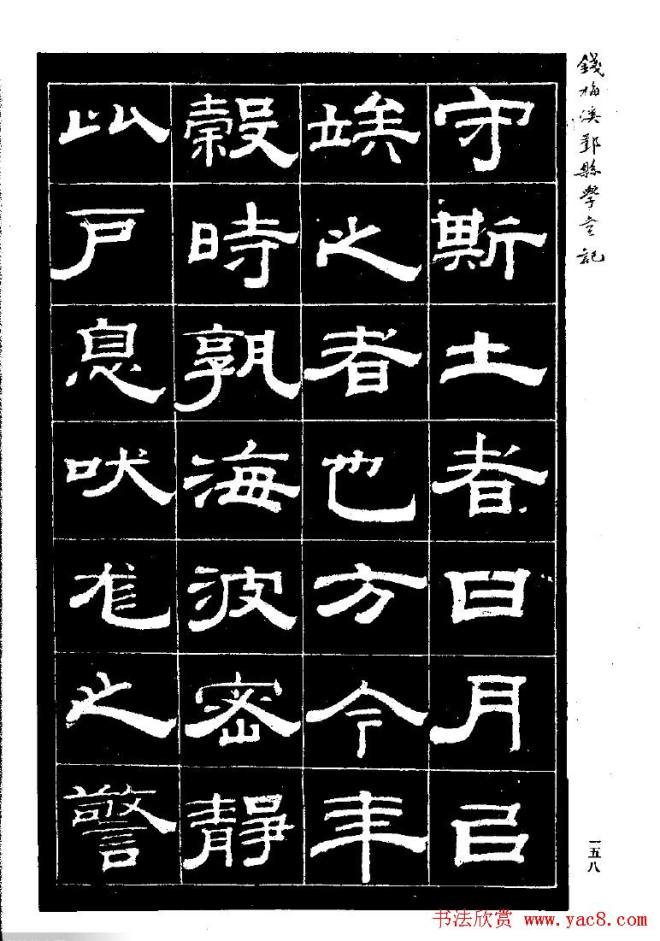 錢梅溪鄞縣學記
守斯土者日月㠯
竢之者也方今年
穀時孰海波密靜
比户息吠尨之警
一五八
书法欣赏 www.yac8.com